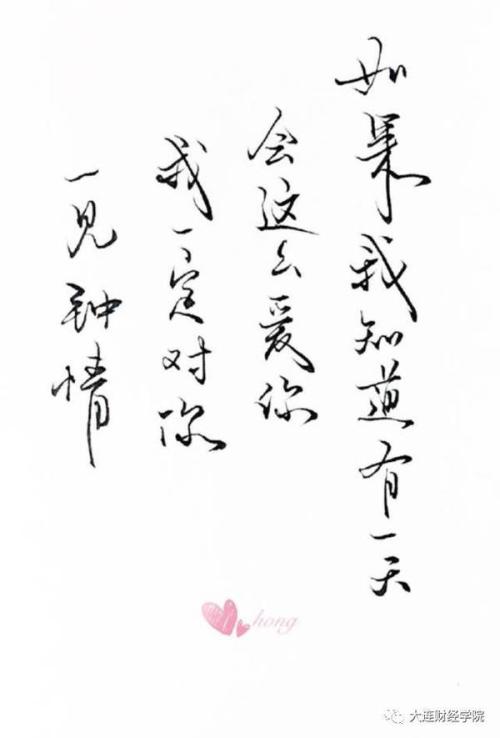 如果我知道有一天
会这么爱你
我一定对你
一见钟情
hong
大连财经学院